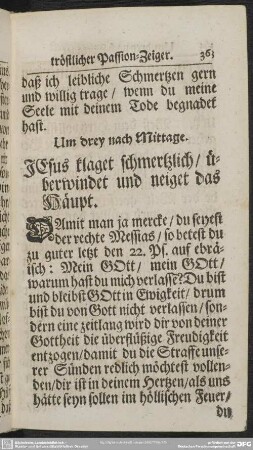 tröstlicher Passion-Zeiger. 363
daß ich leibliche Schmertzen gern
und willig trage/ wenn du meine
Seele mit deinem Tode begnadet
hast.
Um drey nach Mittage.
JEsus klaget schmertzlich/ ü-
berwindet und neiget das
Häupt.
DAmit man ja mercke/ du seyest
der rechte Messias/ so betest du
zu guter letzt den 22. Ps. auf ebrä-
isch: Mein GOtt/ mein GOtt/
warum hast du mich verlasse? Du bist
und bleibst GOtt in Ewigkeit/ drum
bist du von Gott nicht verlassen/ son-
dern eine zeitlang wird dir von deiner
Gottheit die überflüßige Freudigkeit
entzogen/ damit du die Straffe unse-
rer Sünden redlich möchtest vollen-
den/ dir ist in deinem Hertzen/ als uns
hätte seyn sollen im höllischen Feuer/
du